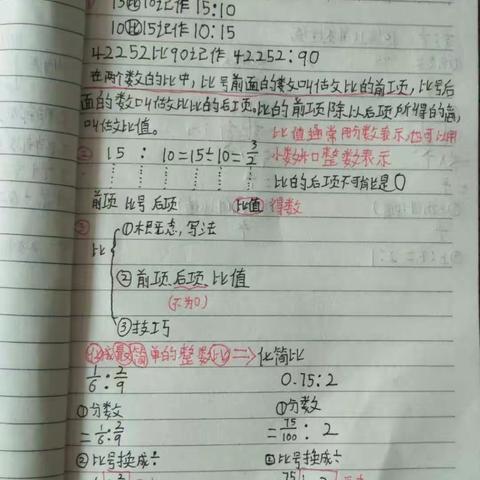 15比10记作 15:10
10比15记作 10:15
42252比90记作 42252:90
在两个数的比中,比号前面的数叫做比的前项,比号后
面的数叫做比的后项。比的前项除以后项所得的商,
叫做比值。
比值通常用分数表示,也可以用
小数和整数表示
② 15 : 10=15÷10=3/2
比的后项不可能是0
前项 比号 后项 比值 得数
③ 比
①意,写法
②前项,后项,比值
(不为0)
③技巧
化成最简单的整数比⇒化简比
1/6:2/9 0.75:2
①分数 ①分数
=1/6:2/9 =75/100:2
②比号换成÷ ②比号换成÷